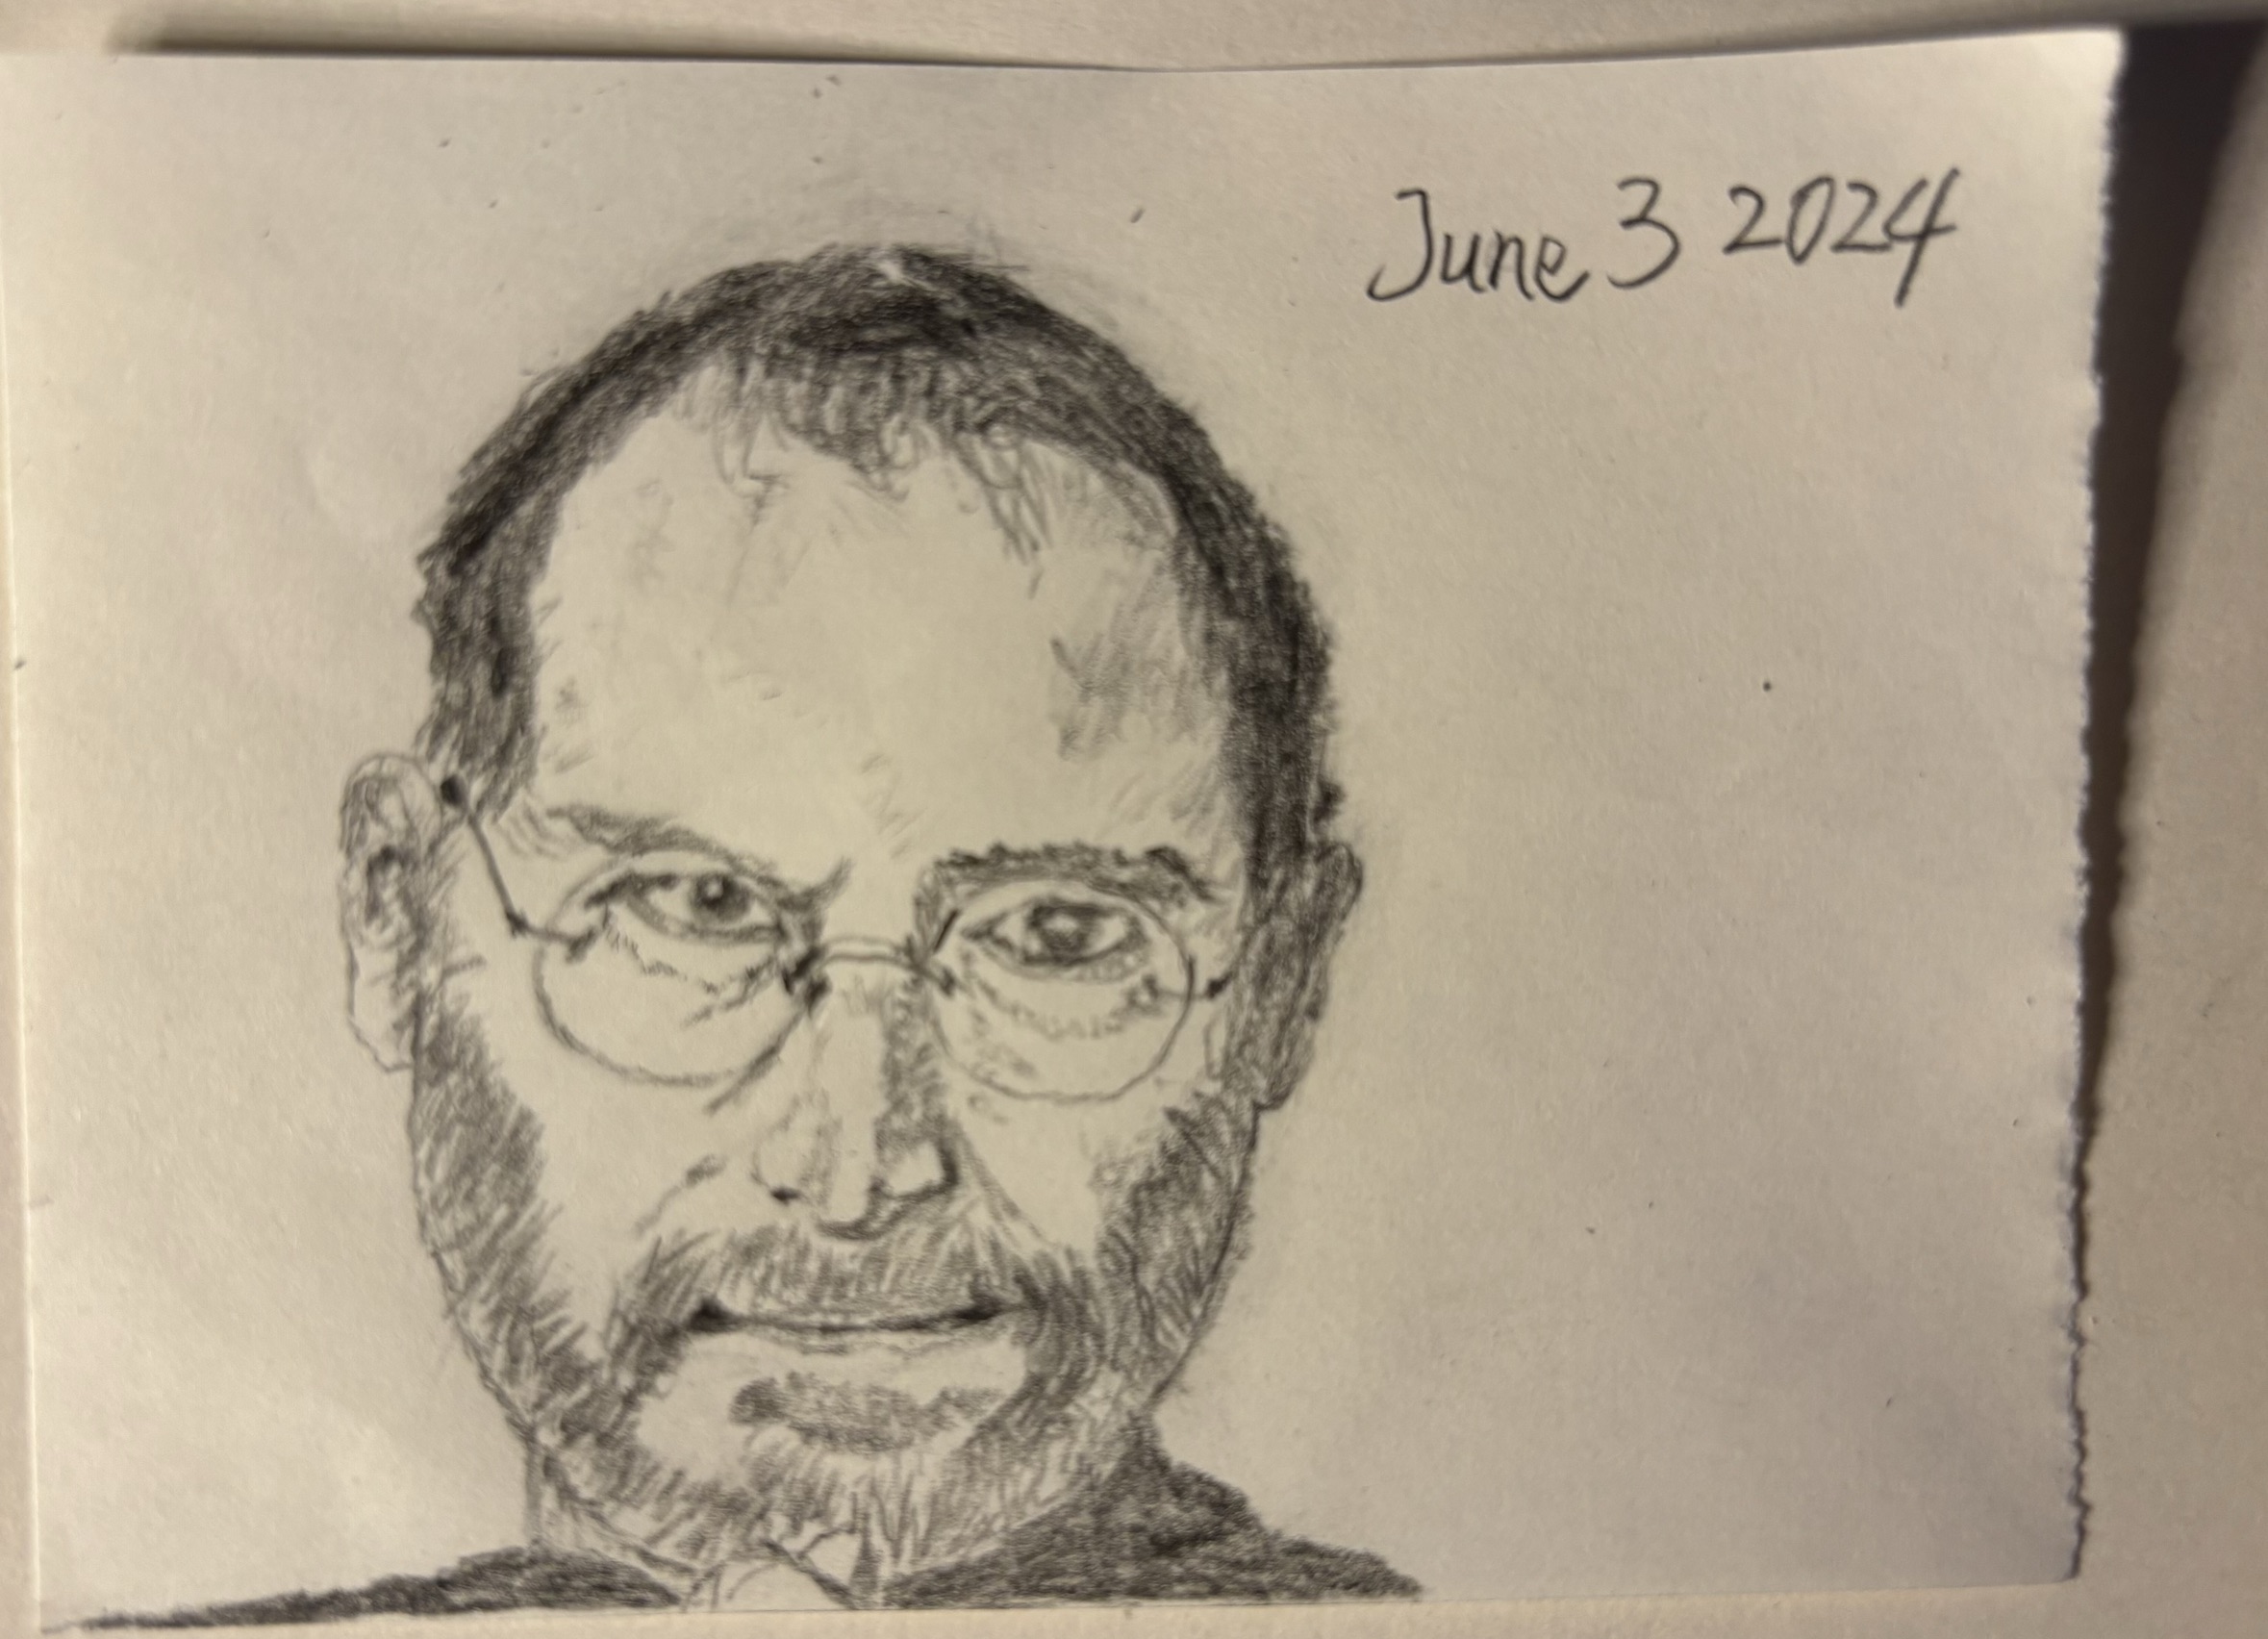 June 3 2024